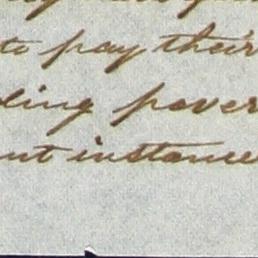 to pay their
ling pover
ut instance